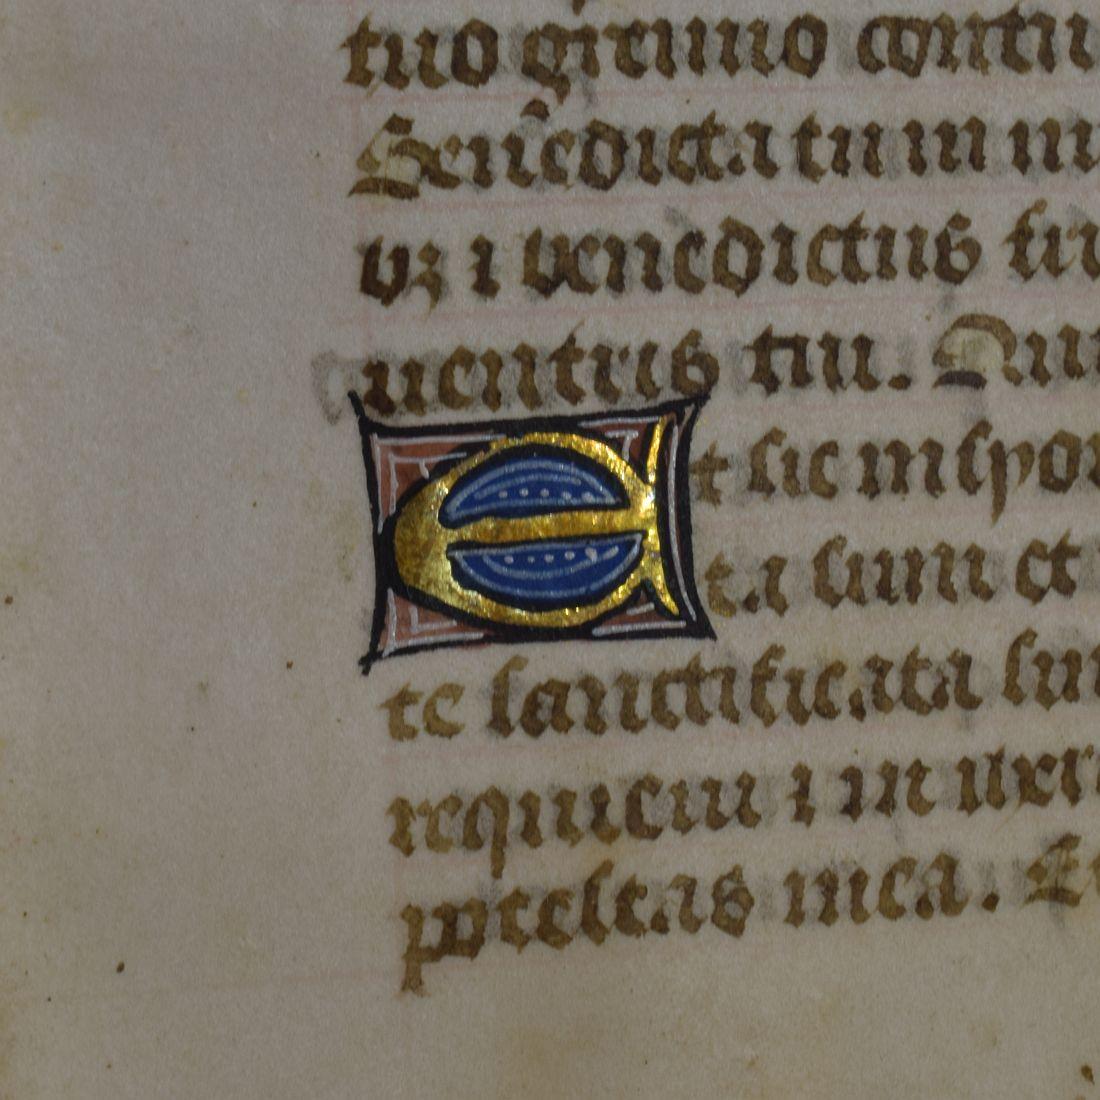 tuo gremio contu
Benedicta tu in mu
bz ⁊ benedictus fru
uentris tui. Aue
Et sic in syon
ta sum et
te sanctificata sum
requieui ⁊ in iheru
potestas mea. Et